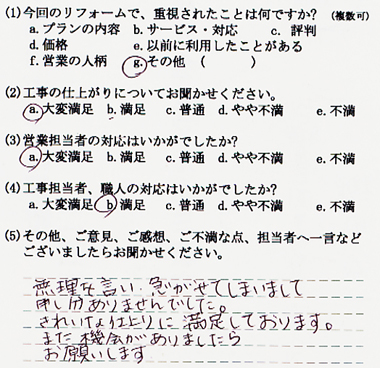 (1)今回のリフォームで、重視されたことは何ですか? (複数可)
a.プランの内容 b.サービス・対応 c. 評判
d.価格 e.以前に利用したことがある
f.営業の人柄 g.その他 ( )
(2)工事の仕上がりについてお聞かせください。
a.大変満足 b.満足 c.普通 d.やや不満 e.不満
(3)営業担当者の対応はいかがでしたか?
a.大変満足 b.満足 c.普通 d.やや不満 e.不満
(4)工事担当者、職人の対応はいかがでしたか?
a.大変満足 b.満足 c.普通 d.やや不満 e.不満
(5)その他、ご意見、ご感想、ご不満な点、担当者へ一言など
ございましたらお聞かせください。
無理を言い、急がせてしまいまして
申し分ありませんでした。
きれいな仕上りに満足しております。
また機会がありましたら
お願いします